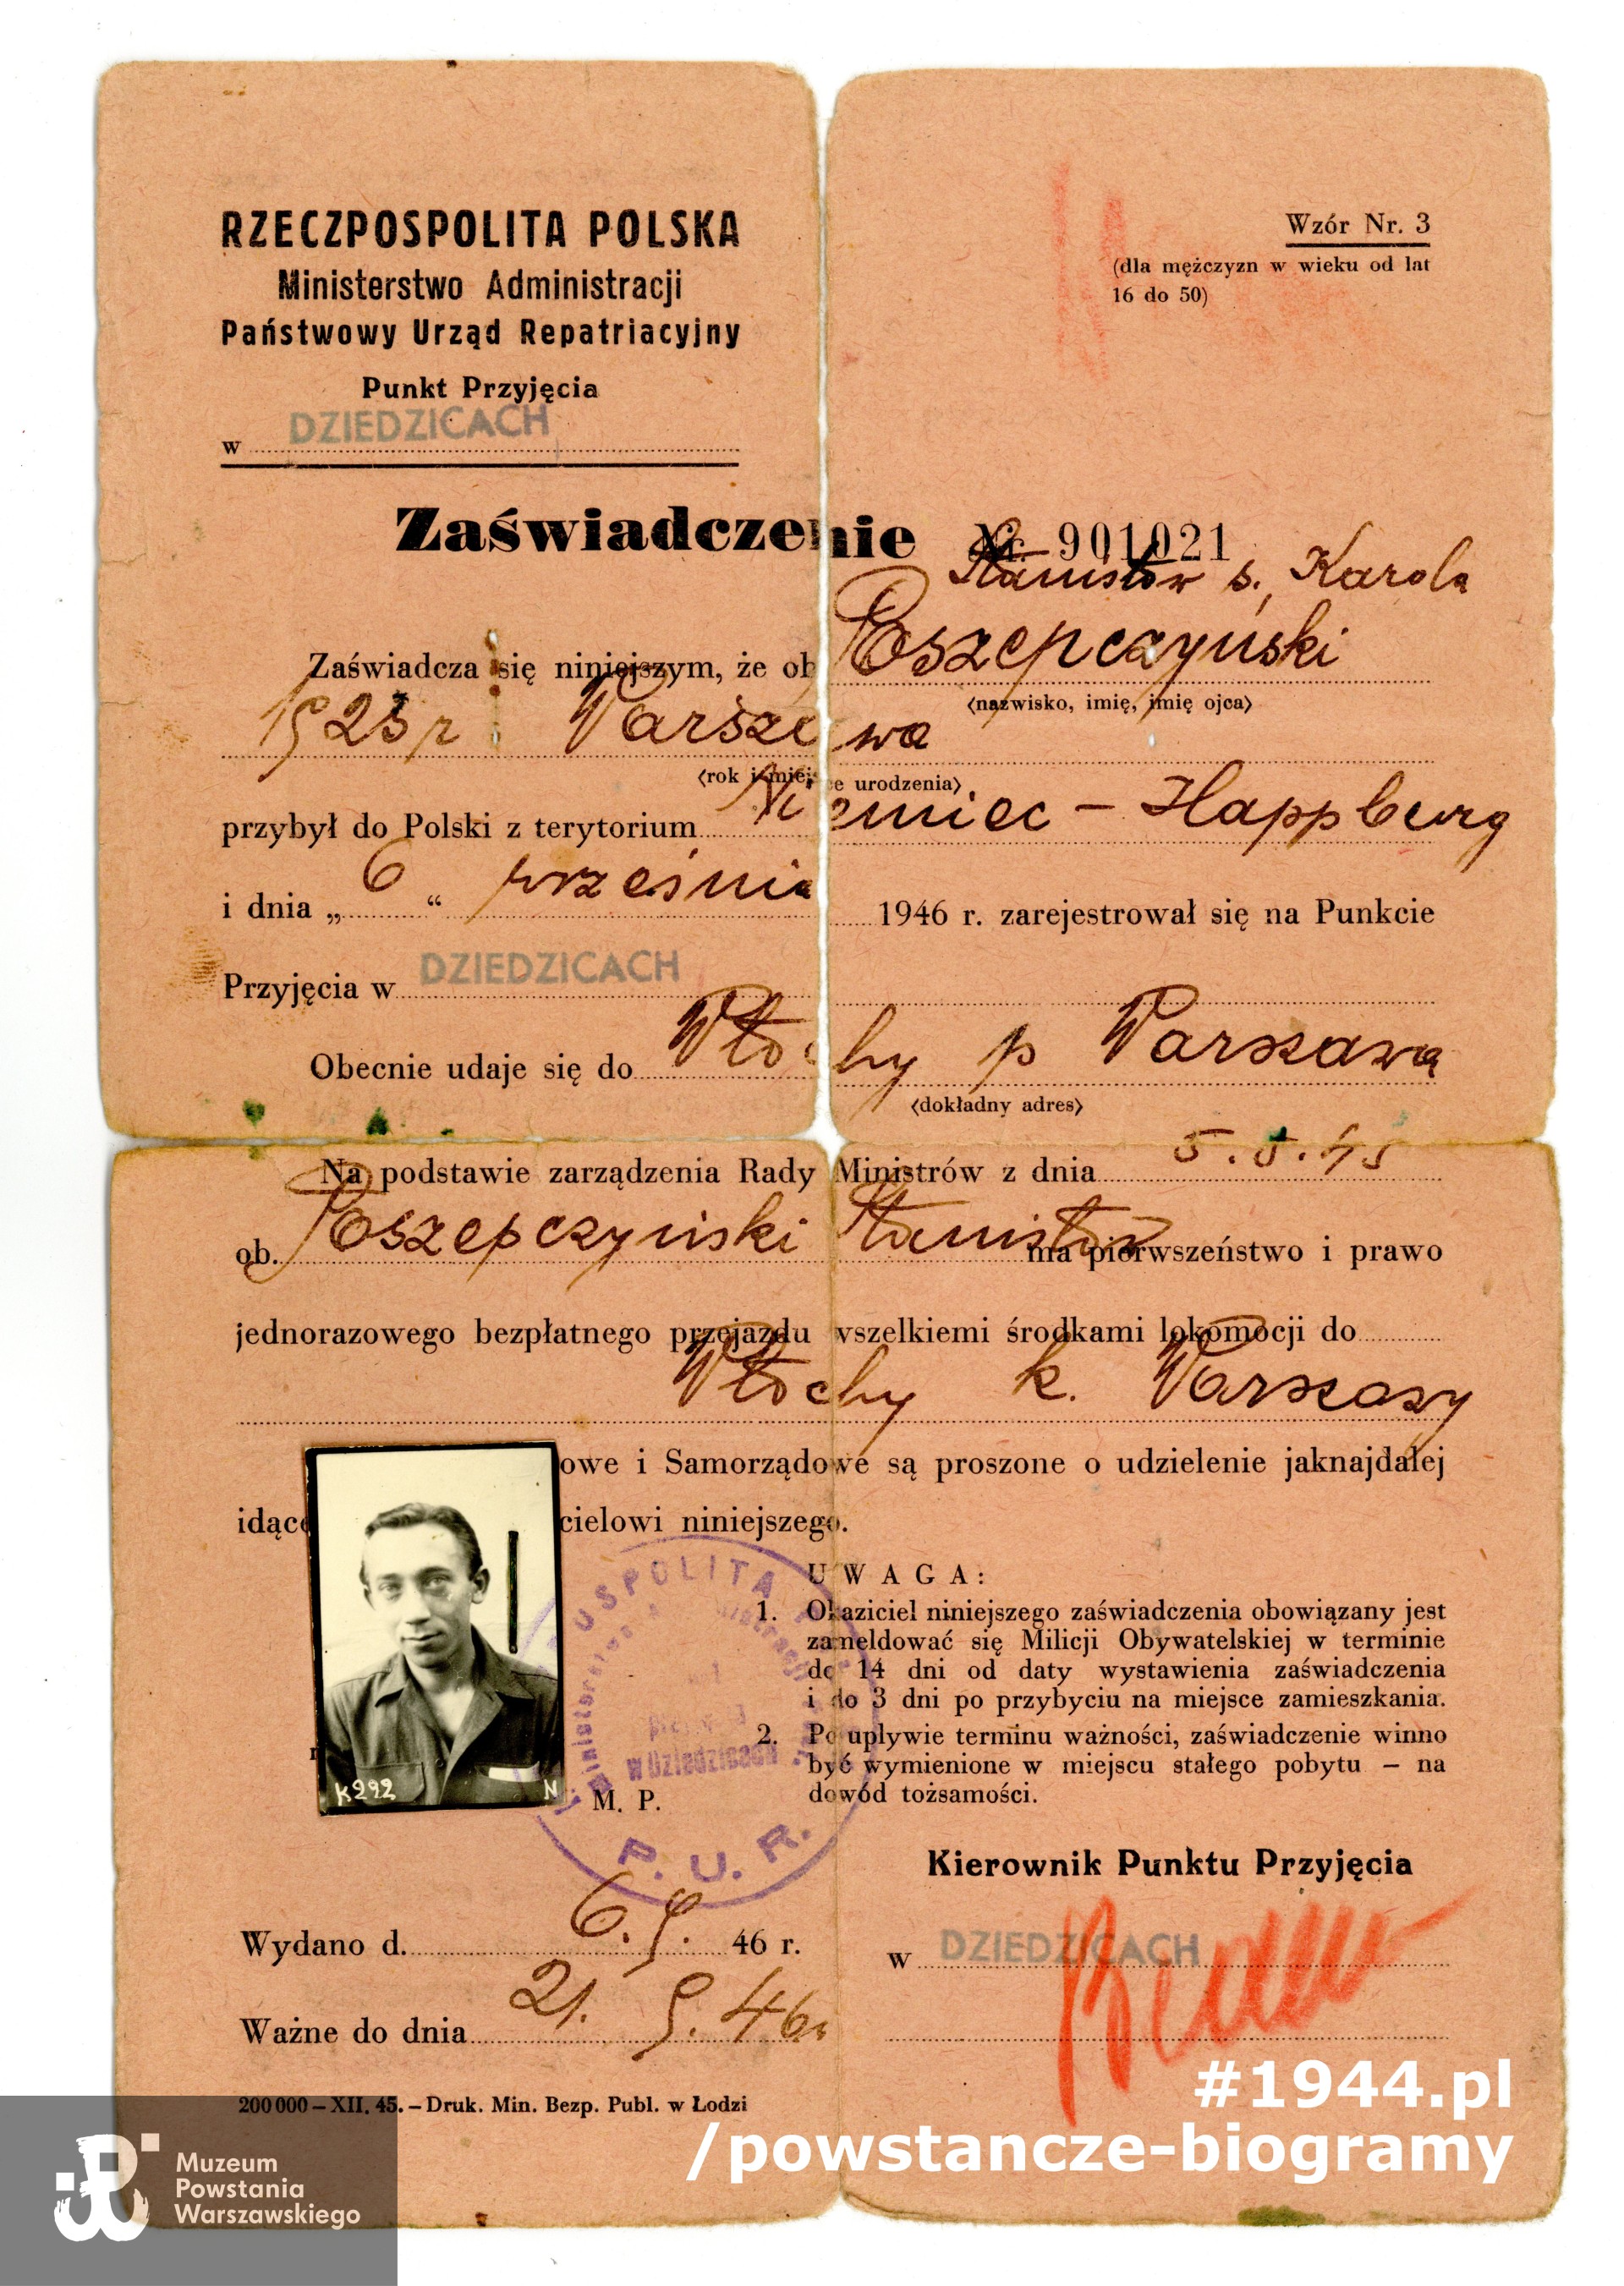 RZECZPOSPOLITA POLSKA
Ministerstwo Administracji
Państwowy Urząd Repatriacyjny
Punkt Przyjęcia
w DZIEDZICACH
Wzór Nr. 3
(dla mężczyzn w wieku od lat
16 do 50)
Zaświadczenie Nr. 901021
Stanisław s. Karola
Zaświadcza się niniejszym, że ob Poszepczyński
(nazwisko, imię, imię ojca)
1923 r. Warszawa
(rok i miejsce urodzenia)
przybył do Polski z terytorium Niemiec – Happburg
i dnia „6“ września 1946 r. zarejestrował się na Punkcie
Przyjęcia w DZIEDZICACH
Obecnie udaje się do Włochy p Warszawą
(dokładny adres)
Na podstawie zarządzenia Rady Ministrów z dnia 5.5.45
ob. Poszepczyński Stanisław ma pierwszeństwo i prawo
jednorazowego bezpłatnego przejazdu wszelkiemi środkami lokomocji do
Włochy k. Warszawy
owe i Samorządowe są proszone o udzielenie jaknajdalej
idące cielowi niniejszego.
UWAGA:
1. Okaziciel niniejszego zaświadczenia obowiązany jest
zameldować się Milicji Obywatelskiej w terminie
do 14 dni od daty wystawienia zaświadczenia
i do 3 dni po przybyciu na miejsce zamieszkania.
2. Po upływie terminu ważności, zaświadczenie winno
być wymienione w miejscu stałego pobytu – na
dowód tożsamości.
K292 N
w Dziedzicach
M. P.
P. U. R.
Kierownik Punktu Przyjęcia
w DZIEDZICACH
Wydano d. 6.9. 46 r.
Ważne do dnia 21. 9. 46
200 000 – XII. 45. – Druk. Min. Bezp. Publ. w Łodzi
#1944.pl
/powstancze-biogramy
Muzeum
Powstania
Warszawskiego